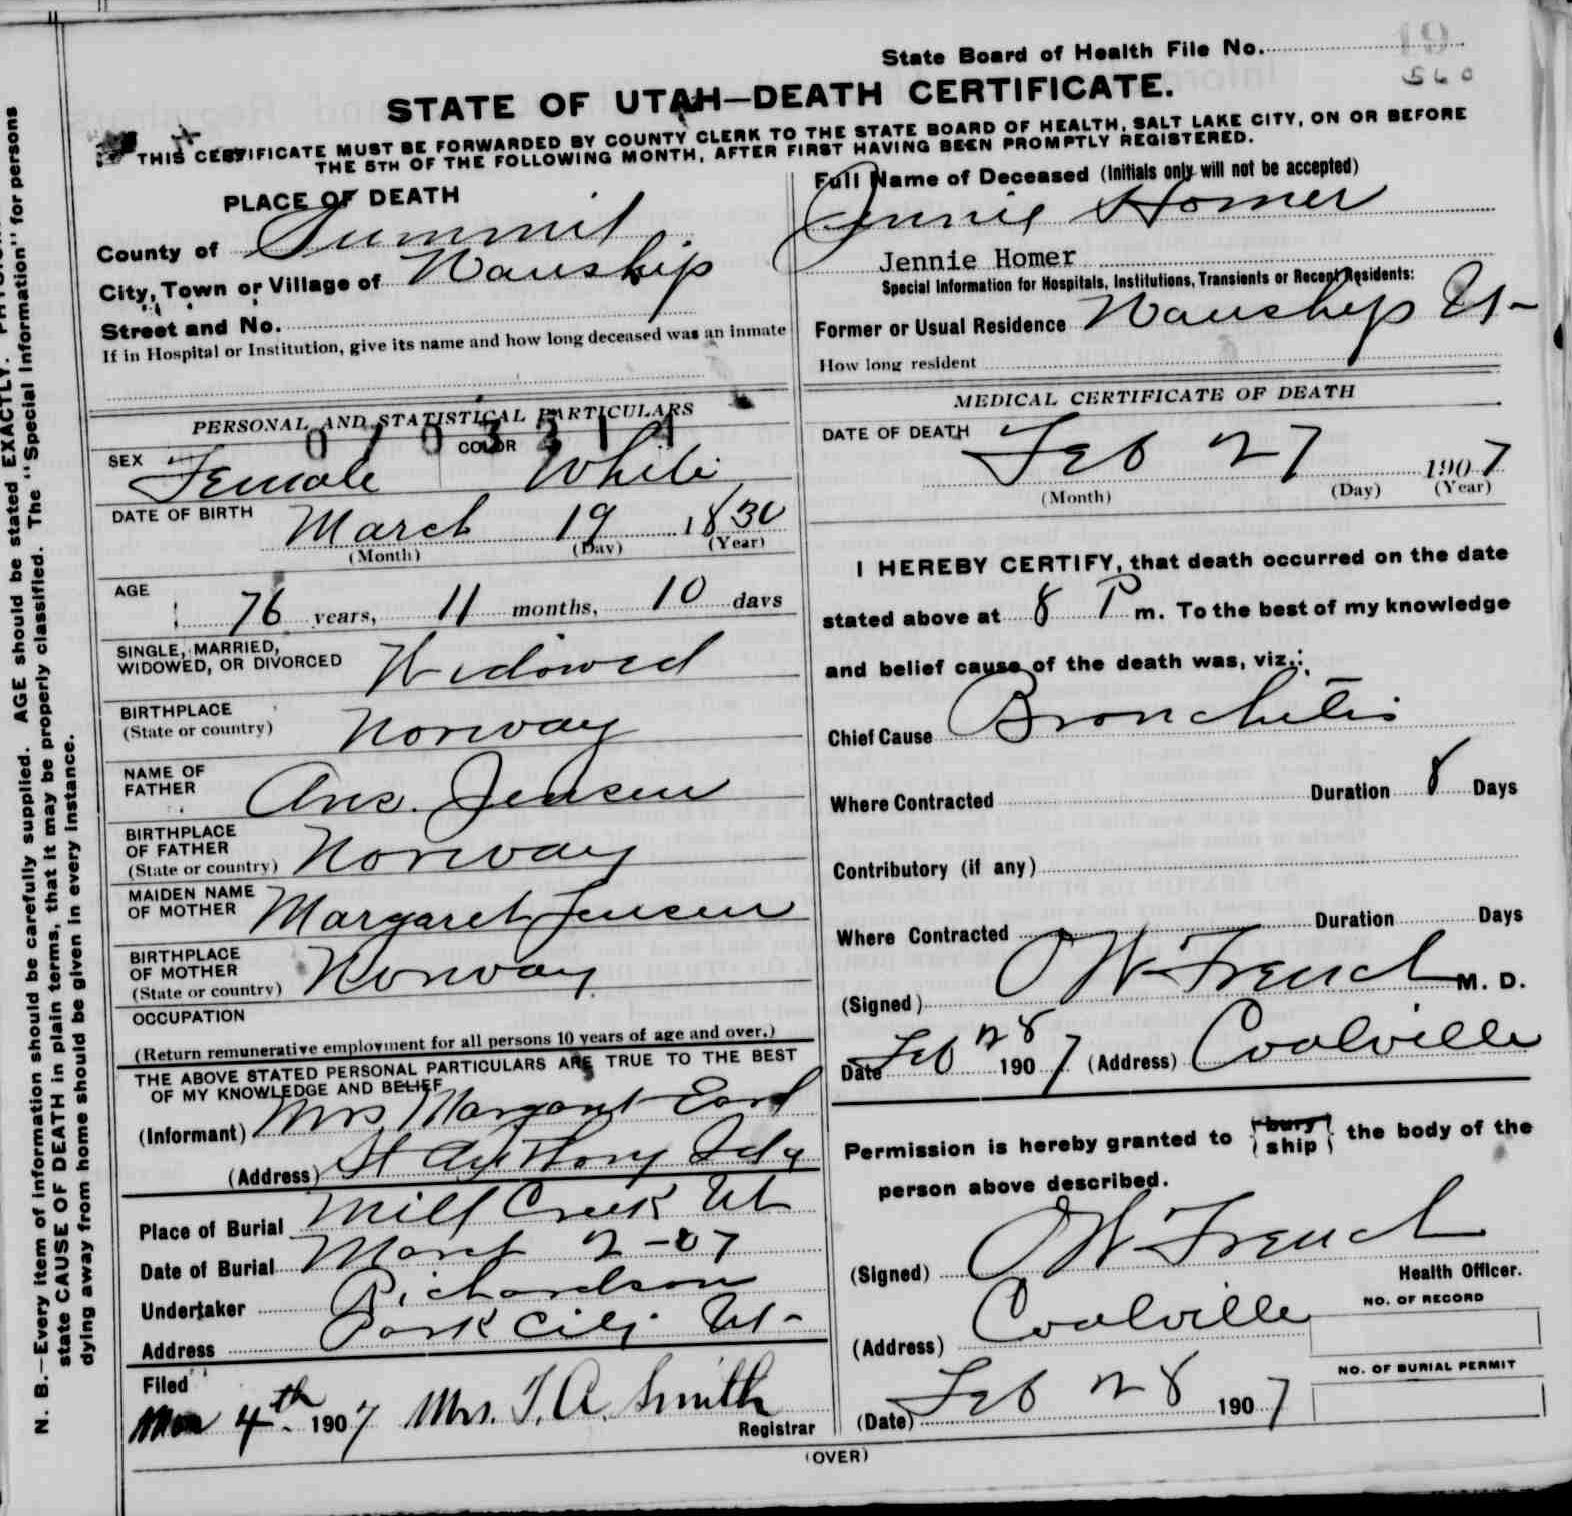 State Board of Health File No.
19
560
STATE OF UTAH—DEATH CERTIFICATE.
THIS CERTIFICATE MUST BE FORWARDED BY COUNTY CLERK TO THE STATE BOARD OF HEALTH, SALT LAKE CITY, ON OR BEFORE
THE 5TH OF THE FOLLOWING MONTH, AFTER FIRST HAVING BEEN PROMPTLY REGISTERED.
PLACE OF DEATH
County of Summit
City, Town or Village of Wanship
Street and No.
If in Hospital or Institution, give its name and how long deceased was an inmate
Full Name of Deceased (Initials only will not be accepted)
Jennie Homer
Jennie Homer
Special Information for Hospitals, Institutions, Transients or Recent Residents:
Former or Usual Residence Wanship Ut-
How long resident
PERSONAL AND STATISTICAL PARTICULARS
SEX Female COLOR White
DATE OF BIRTH March 19 1830
(Month) (Day) (Year)
AGE 76 years, 11 months, 10 days
SINGLE, MARRIED,
WIDOWED, OR DIVORCED Widowed
BIRTHPLACE
(State or country) Norway
NAME OF
FATHER Ans. Jensen
BIRTHPLACE
OF FATHER
(State or country) Norway
MAIDEN NAME
OF MOTHER Margaret Jensen
BIRTHPLACE
OF MOTHER
(State or country) Norway
OCCUPATION
(Return remunerative employment for all persons 10 years of age and over.)
THE ABOVE STATED PERSONAL PARTICULARS ARE TRUE TO THE BEST
OF MY KNOWLEDGE AND BELIEF
(Informant) Mrs Margaret Earl
(Address) St Anthony Ida
Place of Burial Mill Creek Ut
Date of Burial March 2-07
Undertaker Richardson
Address Park City Ut-
Filed
Mar 4th 1907 Mrs. T. A. Smith
Registrar
MEDICAL CERTIFICATE OF DEATH
DATE OF DEATH Feb 27 1907
(Month) (Day) (Year)
I HEREBY CERTIFY, that death occurred on the date
stated above at 8 P m. To the best of my knowledge
and belief cause of the death was, viz.:
Chief Cause Bronchitis
Where Contracted Duration 8 Days
Contributory (if any)
Where Contracted Duration Days
(Signed) O W French M. D.
Date Feb 28 1907 (Address) Coalville
Permission is hereby granted to bury
ship the body of the
person above described.
(Signed) O W French
Health Officer.
(Address) Coalville
NO. OF RECORD
NO. OF BURIAL PERMIT
(Date) Feb 28 1907
(OVER)
N. B.—Every item of information should be carefully supplied. AGE should be stated EXACTLY.
state CAUSE OF DEATH in plain terms, that it may be properly classified. The "Special Information" for persons
dying away from home should be given in every instance.